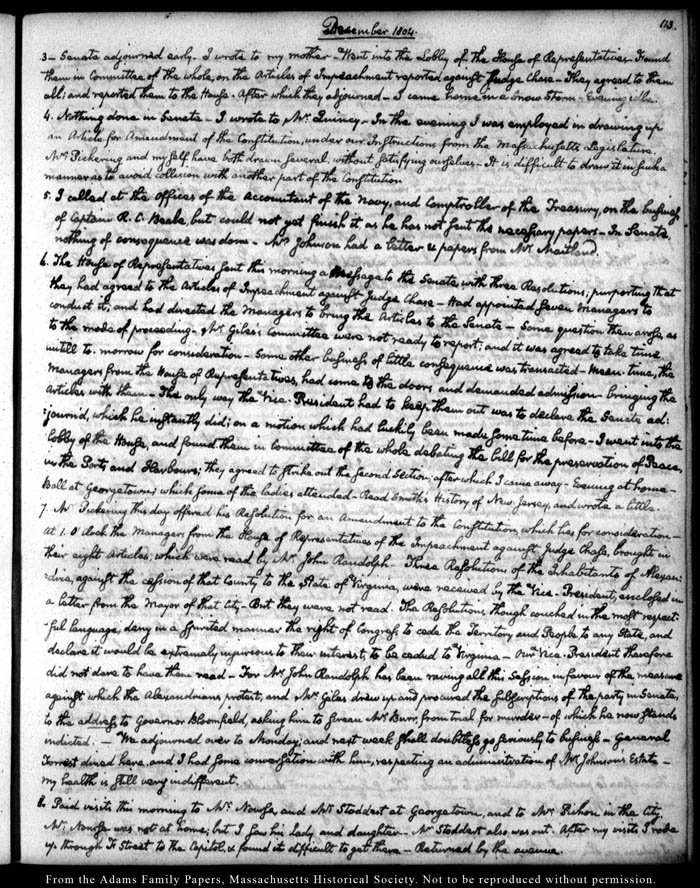 December 1804.
113.
3 – Senate adjourned early. I wrote to my mother – Went into the Lobby of the House of Representatives. Found
them in Committee of the whole, on the Articles of Impeachment reported against Judge Chase – They agreed to them
all; and reported them to the House. After which they adjourned – I came home in a snow storm – Evening idle.
4. Nothing done in Senate – I wrote to Mr. Quincy – In the evening I was employed in drawing up
an Article for Amendment of the Constitution, under our Instructions from the Massachusetts Legislature.
Mr. Pickering and myself have both drawn several, without satisfying ourselves – It is difficult to draw it in such a
manner as to avoid collision with another part of the Constitution
5. I called at the Offices of the Accountant of the Navy, and Comptroller of the Treasury, on the business
of Captain R. C. Beale, but could not yet finish it, as he has not sent the necessary papers – In Senate,
nothing of consequence was done – Mrs. Johnson had a letter & papers from Mr. Maitland.
6. The House of Representatives sent this morning a Message to the Senate, with three Resolutions; purporting that
they had agreed to the Articles of Impeachment against Judge Chase – Had appointed seven Managers to
conduct it; and had directed the Managers to bring the Articles to the Senate – Some question then arose, as
to the mode of proceeding – Mr. Giles's Committee were not ready to report; and it was agreed to take time
untill to-morrow for consideration – Some other business of little consequence was transacted – Mean-time, the
Managers from the House of Representatives, had come to the doors and demanded admission – bringing the
Articles with them – The only way the Vice-President had to keep them out was to declare the Senate ad:
:journ'd, which he instantly did; on a motion which had luckily been made sometime before – I went into the
lobby of the House, and found them in Committee of the whole debating the bill for the preservation of Peace,
in the Ports and Harbours; they agreed to strike out the second section; after which I came away – Evening at home –
Ball at Georgetown; which some of the ladies attended – Read Smith's History of New Jersey, and wrote a little.
7. Mr. Pickering this day offered his Resolution for an Amendment to the Constitution, which lies for consideration –
At 1. O'clock the Managers from the House of Representatives of the Impeachment against Judge Chase, brought in
their eight Articles; which were read by Mr. John Randolph – Three Resolutions of the Inhabitants of Alexan:
:dria, against the cession of that County to the State of Virginia, were received by the Vice-President, enclosed in
a letter from the Mayor of that City – But they were not read. The Resolutions, though couched in the most respect:
:ful language, deny in a spirited manner the right of Congress to cede the Territory and People to any State, and
declare it would be extremely injurious to their interest, to be ceded to Virginia – Our Vice-President therefore
did not dare to have them read – For Mr. John Randolph has been raving all this Session in favour of the measure
against which the Alexandrians protest, and Mr. Giles drew up and procured the subscriptions of the party in Senate,
to the address to Governor Bloomfield, asking him to screen Mr. Burr, from trial for murder – of which he now stands
indicted. – We adjourned over to Monday; and next week shall doubtless go seriously to business – General
Forrest dined here, and I had some conversation with him, respecting an administration of Mr. Johnson's Estate –
my health is still very indifferent.
8. Paid visits this morning to Mr. Nourse, and Mr. Stoddert at Georgetown, and to Mr. Pichon in the City.
Mr. Nourse was not at home; but I saw his lady and daughter – Mr. Stoddert also was out. After my visits I rode
up through F. Street to the Capitol, & found it difficult to get there – Returned by the avenue.
From the Adams Family Papers, Massachusetts Historical Society. Not to be reproduced without permission.